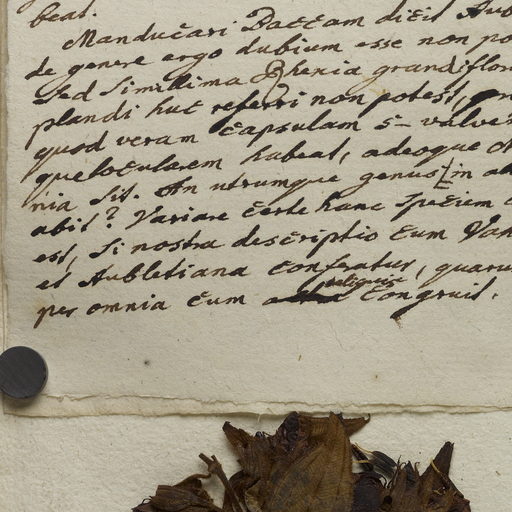 beat.
Manducari Baccam dicit Aub
de genere ergo dubium esse non po
sed simillima Rhexia grandiflor
plandi huc referri non potest,
quod veram capsulam 5-valve
quelocularem habeat, adeoque
nia sit. An utrumque genus in
abit? Variare certe hanc speciem
est, si nostra descriptio cum Van
et Aubletiana conferatur, quaru
per omnia cum reliquis congruit.